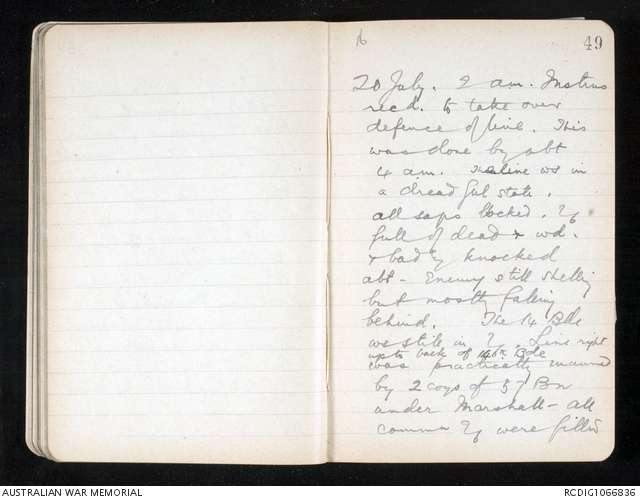 49
20 July. 2 am. Instrns
recd. to take over
defence of line. This
was done by abt
4 a.m. The line ws in
a dreadful state.
all saps blocked. Tr
full of dead & wd.
& badly knocked
abt - Enemy still shelling
but mostly falling
behind. The 14 Bde
ws still in Tr. Line right
up to back of 14th Bde
was practically manned
by 2 coys of 57 Bn
under Marshall - all
commn Tr were filled
AUSTRALIAN WAR MEMORIAL
RCDIG1066836